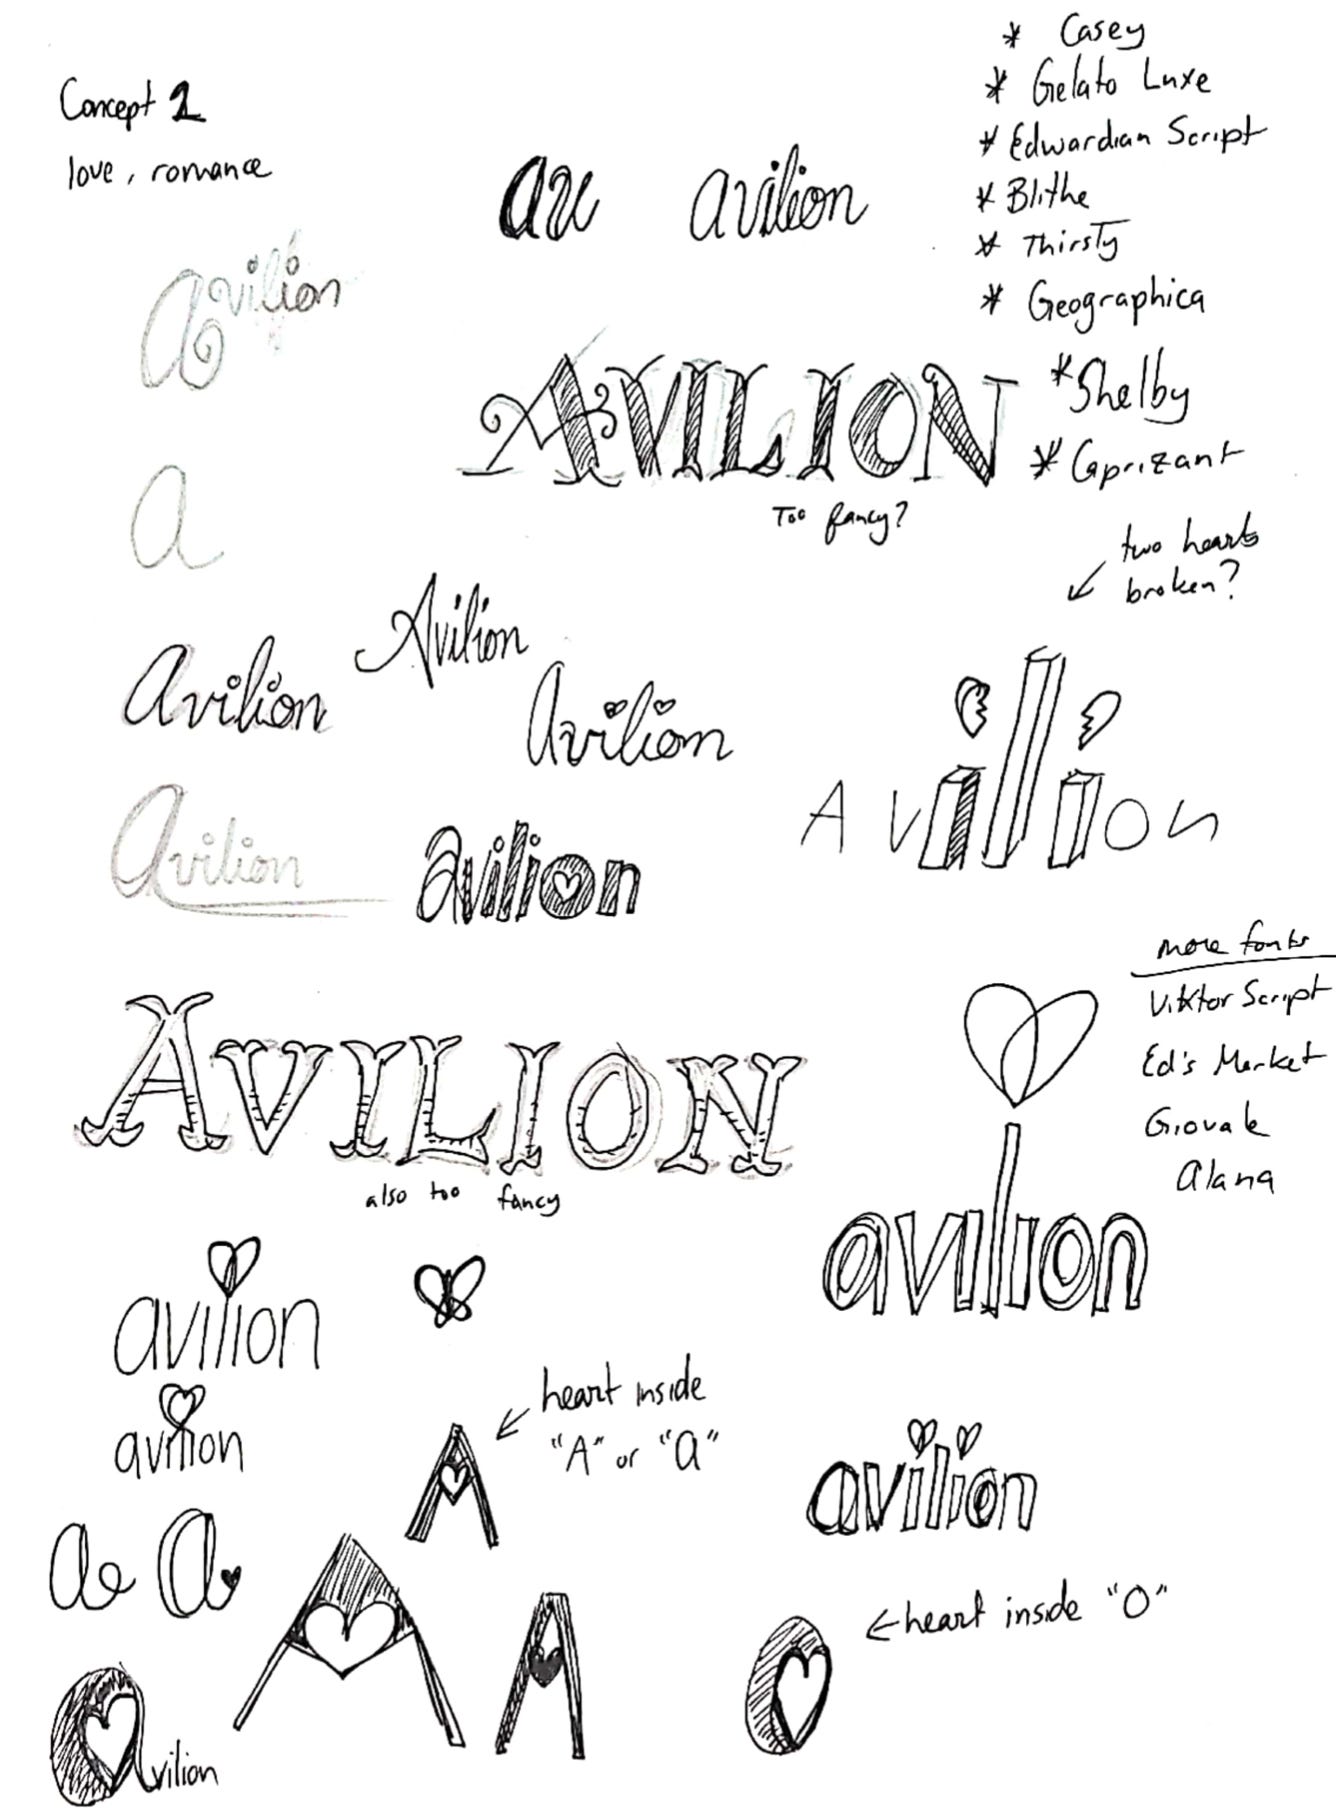 Concept 1
love, romance
* Casey
* Gelato Luxe
* Edwardian Script
* Blithe
* Thirsty
* Geographica
* Shelby
* Caprizant
av
avilion
avilion
AVILION
Too fancy?
a
two hearts
broken?
Avilion
avilion
avilion
Avilion
avilion
avilion
more fonts
Viktor Script
Ed's Market
Giovale
Alana
AVILION
also too fancy
avilion
avilion
avilion
heart inside
"A" or "a"
A
avilion
a a
A A
heart inside "O"
O
avilion